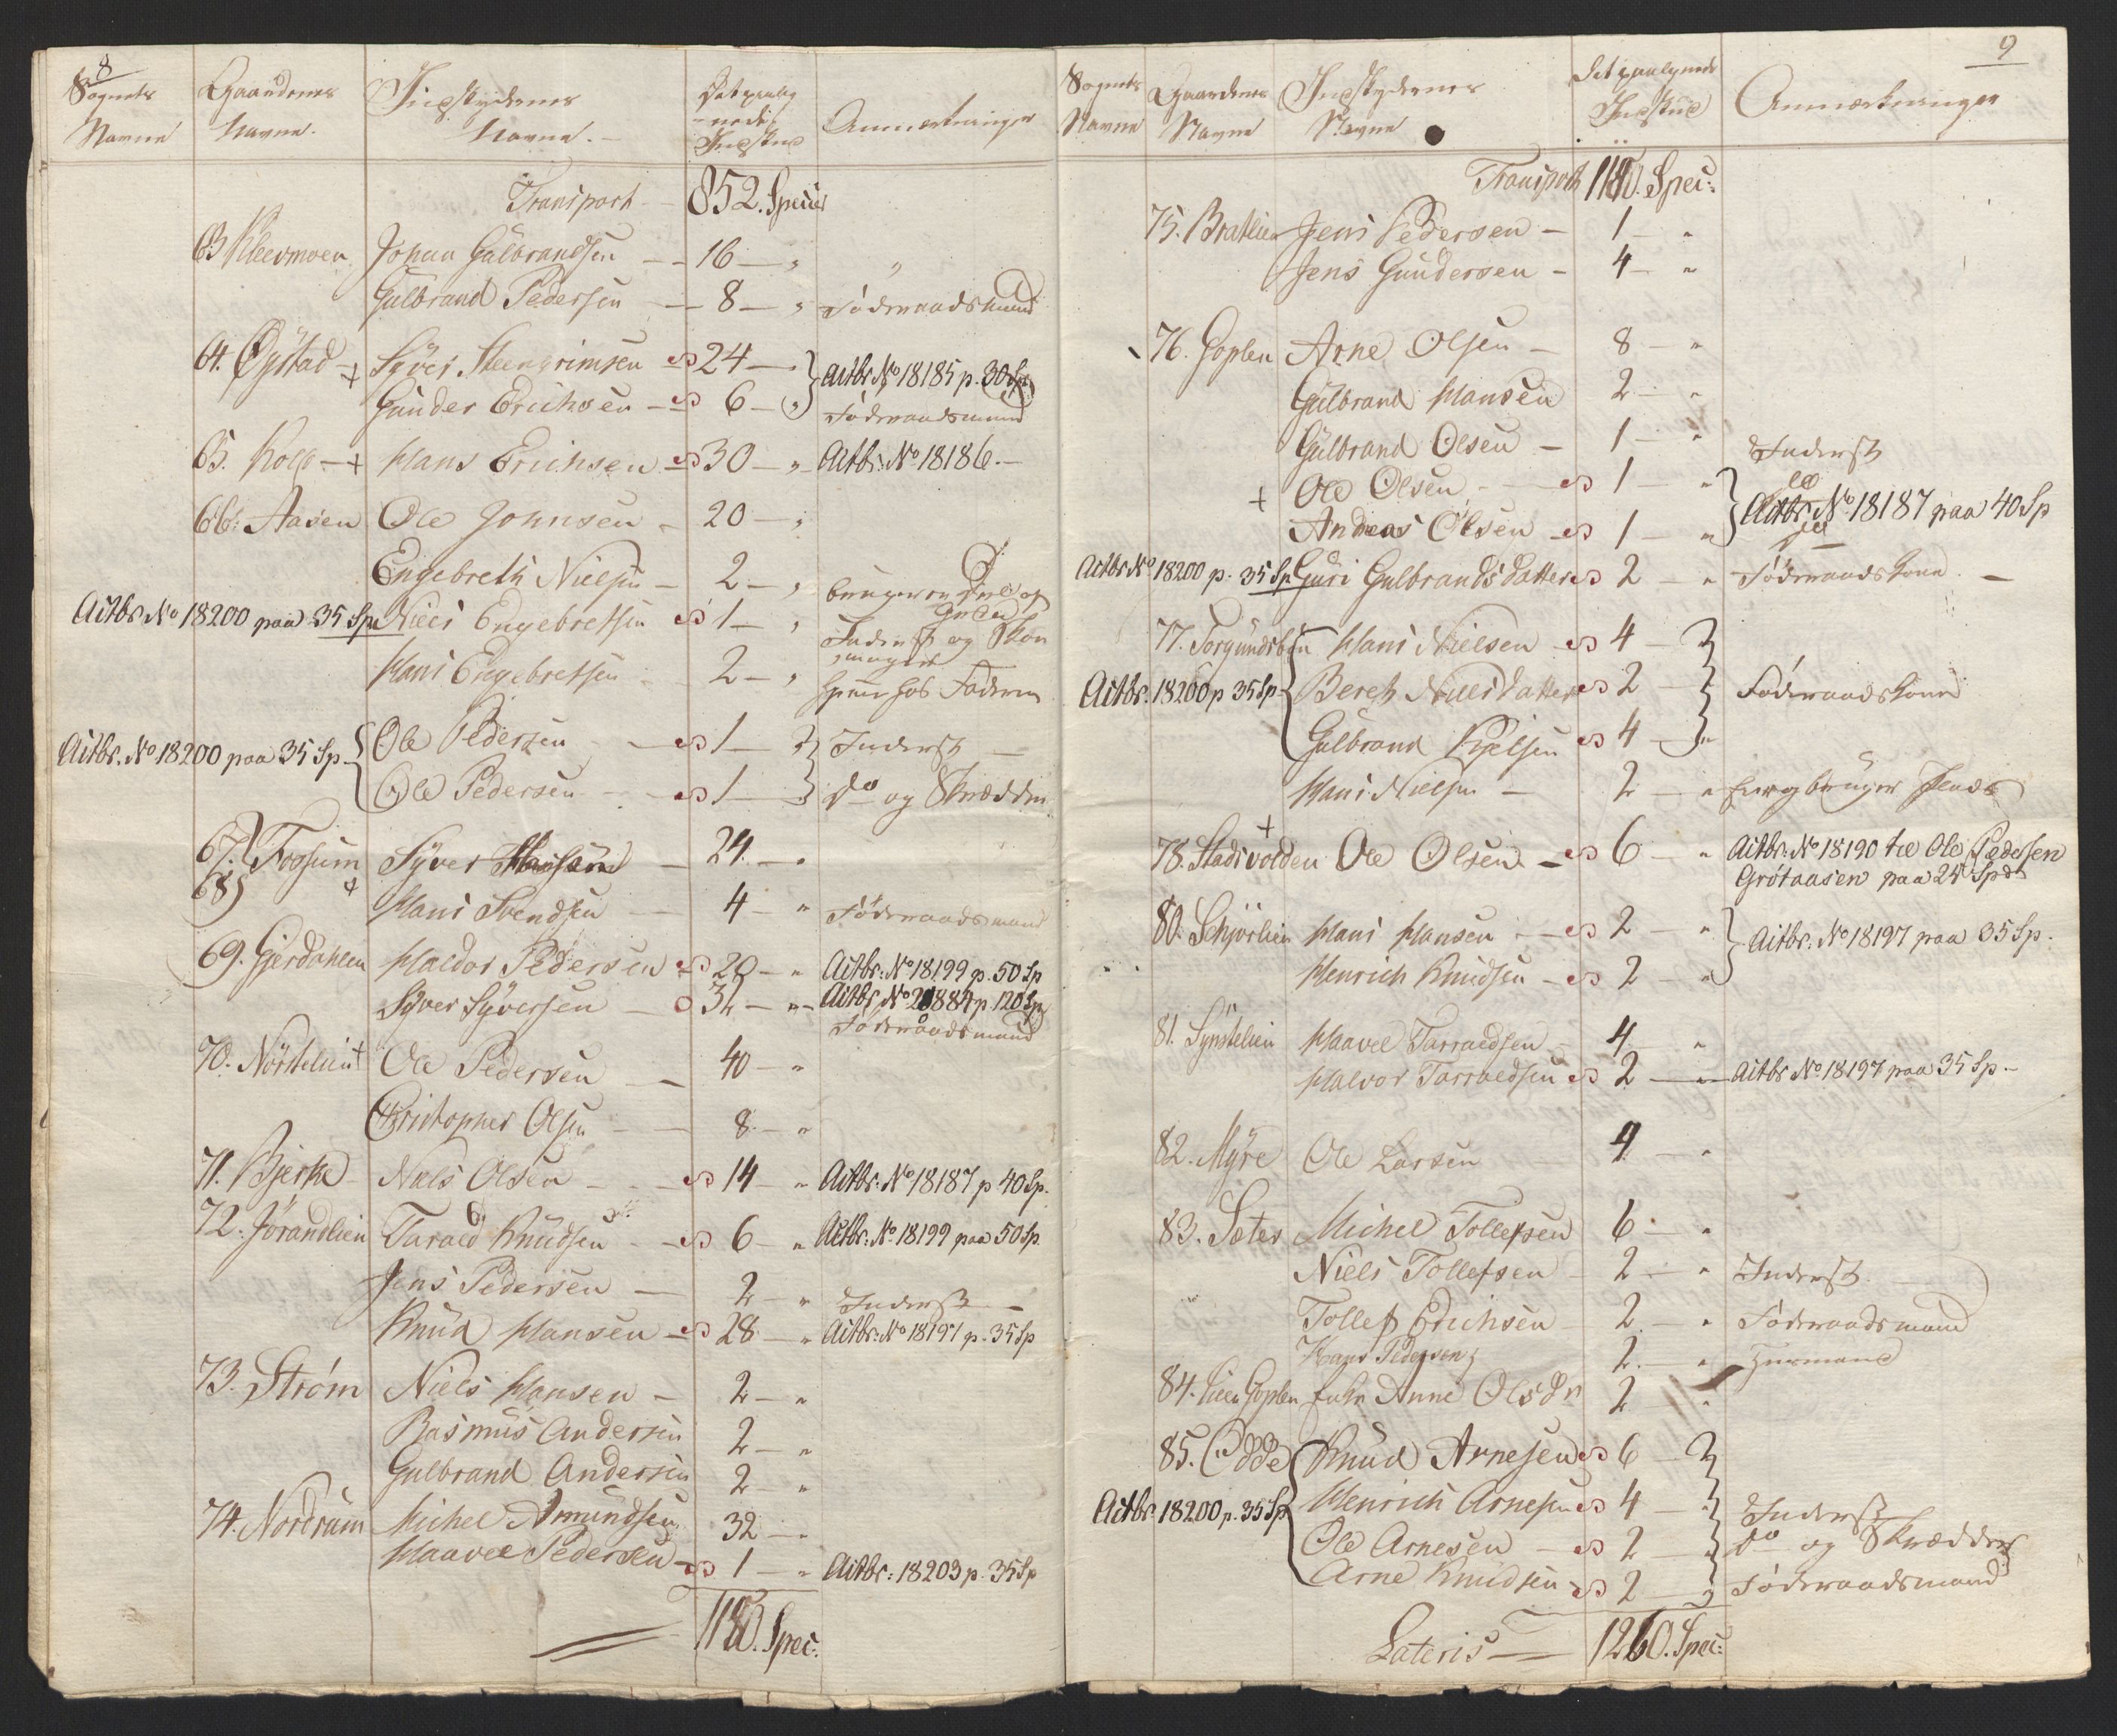 8
Sognets Navne
Gaardenes Navne.
Indskydernes Navne.
Det paalignede Indskud
Anmærkninger
Transport 852. Specier
63 Kleevmoen Johan Gulbrandsen — 16 — "
Gulbrand Pedersen — 8 — " Föderaadsmand
64. Öÿstad + Syver Steengrimsen 24 — Actbr No 18185 p. 30 Sp
Gunder Erichsen — 6 — " Föderaadsmand
65. Kolo + Hans Erichsen 30 — " Actbr: No 18186. —
66. Aasen Ole Johnsen — 20 — "
Engebreth Nielsen — 2 — " bruger en Deel af Gaden
Actbr No 18200 paa 35 Spe Niels Engebretsen 1 — " Inderst og Skomager
Hans Engebretsen — 2 — " hos Faderen
Actbr. No 18200 paa 35 Sp. Ole Pedersen — 1 — Inderst —
Ole Pedersen — 1 — do og Skrædder
67. 68) Fossum + Syver Hansen — 24. — "
Hans Svendsen — 4 — " Föderaadsmand
69. Gjerdahlen Haldor Pedersen 20 — " Actbr: No 18199 p. 50 Sp
Syver Syversen — 32 — " Actbr No 21884 p. 120 Sp. Föderaadsmand
70. Nörstelien + Ole Pedersen — 40 — "
Christopher Olsen — 8 — "
71. Bjerke Niels Olsen — 14 — " Actbr: No 18187 p 40 Sp.
72. Jörandlien Tarald Knudsen — 6 — " Actbr: No 18199 paa 50 Sp.
Jens Pedersen — 2 — " Inderst —
Knud Hansen — 28 — " Actbr: No 18197 p. 35 Sp
73. Ström Niels Hansen — 2 — "
Rasmus Andersen 2 — "
Gulbrand Andersen 2 — "
74. Nordrum Michel Amundsen 32 — "
Haavel Pedersen 1 — " Actbr: 18203 p. 35 Sp
1180. Spec:
9
Sognets Navne
Gaardenes Navne
Indskydernes Navne
Det paalignede Indskud
Anmærkninger
Transport 1180. Spec:
75. Bratlien Jens Pedersen — 1 — "
Jens Gundersen — 4 — "
76. Goplen Arne Olsen — 8 — "
Gulbrand Hansen 2 — "
Gulbrand Olsen — 1 — " Inderst
+ Ole Olsen — 1 — " do
Andreas Olsen — 1 — " Actbr No 18187 paa 40 Sp
Actbr No 18200 p. 35 Sp Guri Gulbrandsdatter 2 — " Föderaadskone —
77. Torgundsbye Hans Nielsen 4 —
Actbr. 18200 p 35 Sp Bereth Nielsdatter 2 — Föderaadskone
Gulbrand Kjelsen 4 — "
Hans Nielsen — 2 — " bruger Plads
78. Stadsvolden + Ole Olsen — 6 — " Actbr. No 18190 til Ole Pedersen
Grötaasen paa 24 Spd
80. Schjörlien Hans Hansen — 2 — " Actbr. No 18197 paa 35 Sp.
Henrich Knudsen — 2 — "
81. Synstelien Haavel Tarraldsen 4 — "
Halvor Tarraldsen 2 — Actbr No 18197 paa 35 Sp —
82. Myre Ole Larsen 4 — "
83. Sæter Michel Tollefsen 6 — "
Niels Tollefsen — 2 — " Inderst
Tollef Erichsen — 2 — " Föderaadsmand
Hans Pedersen 2 — " Huusmand
84. Lien Goplen Enke Anne Olsdr 2 "
85. Odde Knud Arnesen 6 —
Actbr. 18200 p. 35 Sp Henrich Arnesen 4 — Inderst
Ole Arnesen — 2 — do og Skrædder
Arne Knudsen 2 — Föderaadsmand
Lateris — 1260. Spec: